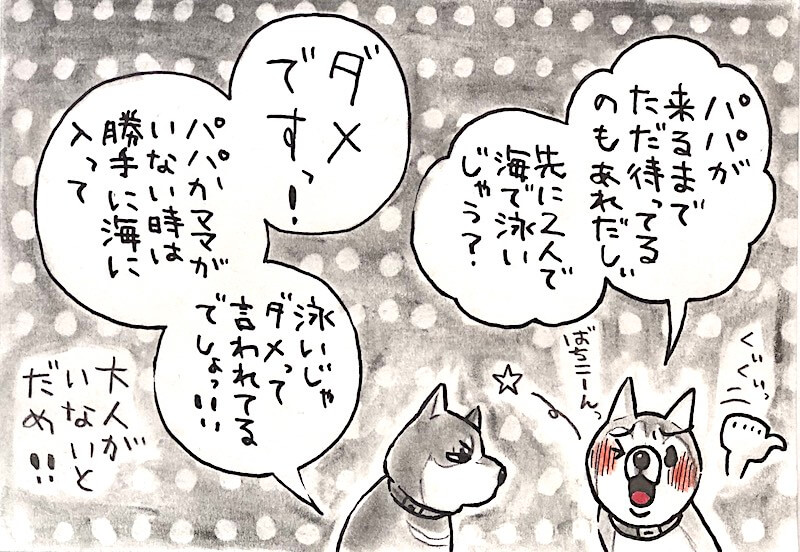 パパが
来るまで
ただ待ってる
のもあれだし゛
先に2人で
海で泳い
じゃう？
ばちこーんっ
ぐいぐいっ
ダメ
ですっ！
パパかママが
いない時は
勝手に海に
入って
泳いじゃ
ダメって
言われてる
でしょっ!!!
大人が
いないと
だめ!!